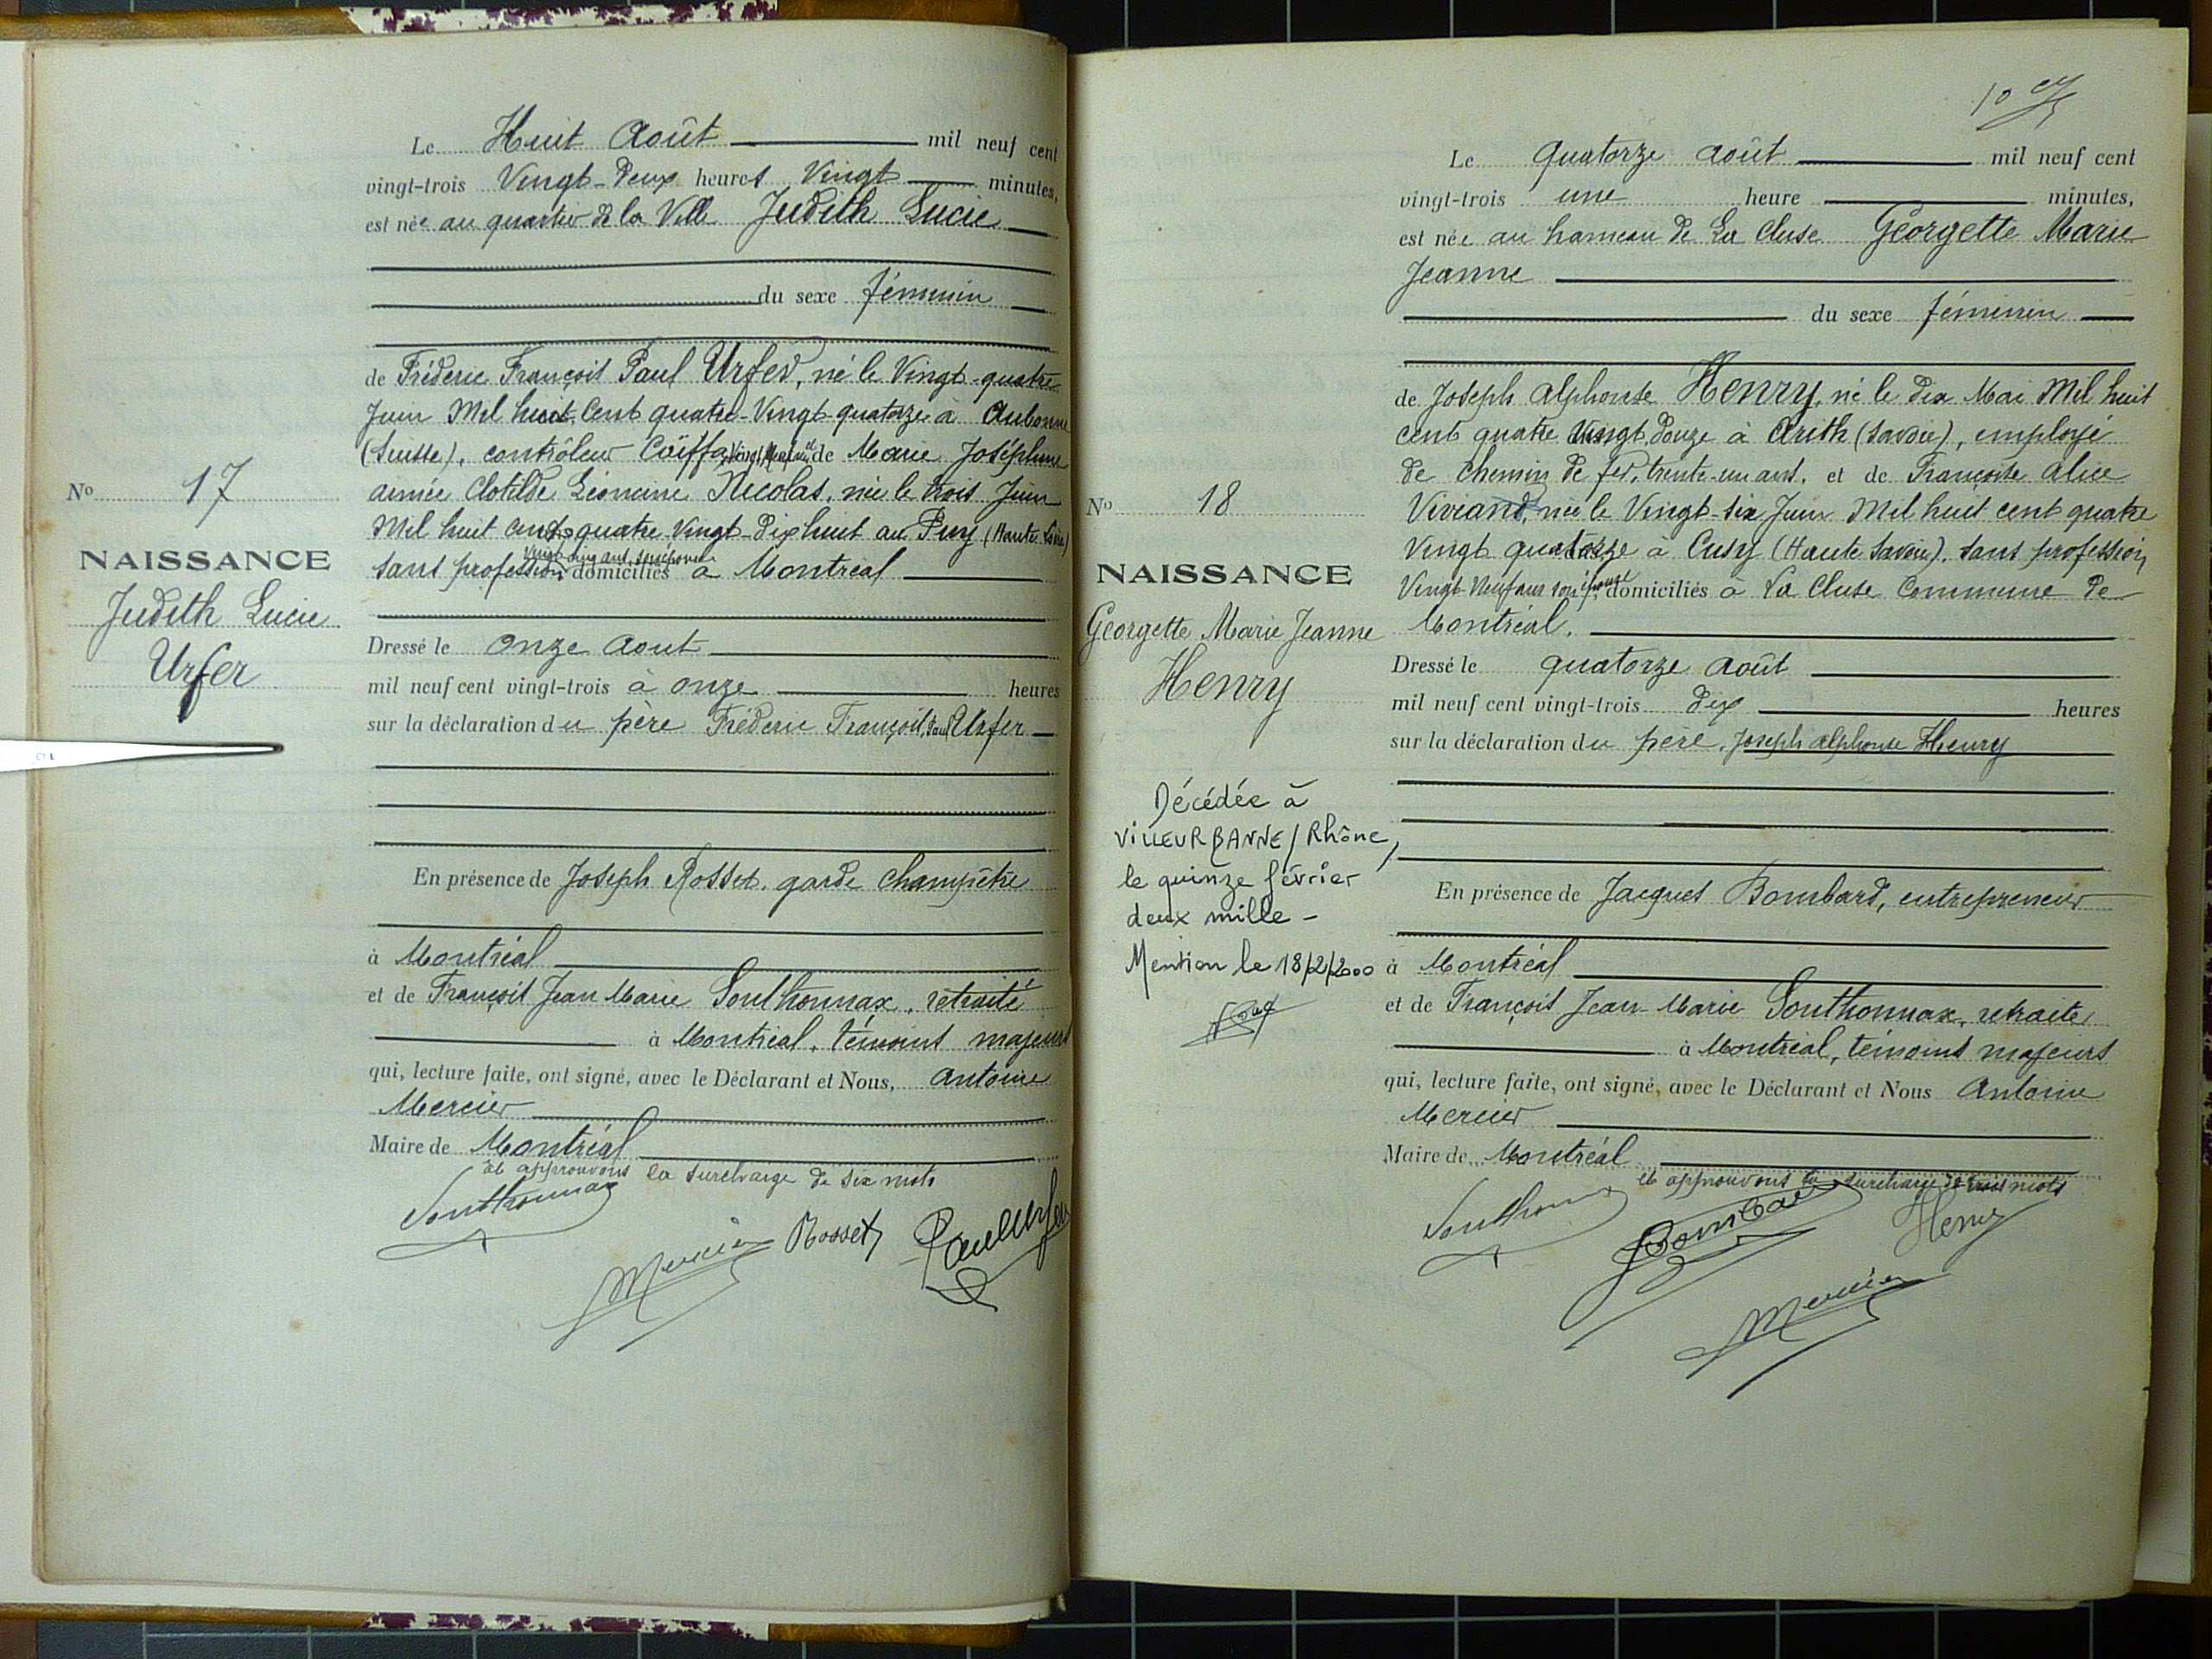 Le Huit Août mil neuf cent
vingt-trois Vingt-Deux heures Vingt minutes,
est née au quartier de la Ville Judith Lucie
du sexe féminin
de Fréderic François Paul Urfer, né le Vingt-quatre
Juin Mil huit Cent quatre-Vingt quatorze à Aubonne
(Suisse), contrôleur Coïffa, Vingt Neuf ans et de Marie Joséphine
aimée Clotilde Léoncine Nicolas, née le trois Juin
Mil huit cent quatre Vingt-Dix huit au Puy (Haute Loire)
sans profession, Vingt cinq ans, son épouse domiciliés à Montréal
No 17
NAISSANCE
Judith Lucie
Urfer
Dressé le onze Aout
mil neuf cent vingt-trois à onze heures
sur la déclaration du père Fréderic François, Paul Urfer
En présence de Joseph Rosset, garde champêtre
à Montréal
et de François Jean Marie Southonnax, retraité
à Montréal, témoins majeurs
qui, lecture faite, ont signé, avec le Déclarant et Nous, Antoine
Mercier
Maire de Montréal
et approuvons la surcharge de six mots
Southonnax
Mercier Rosset Paul Urfer
10
Le quatorze août mil neuf cent
vingt-trois une heure minutes,
est née au hameau de La Cluse Georgette Marie
Jeanne
du sexe féminin
de Joseph Alphonse Henry, né le dix Mai Mil huit
cent quatre Vingt douze à Arith (Savoie), employé
de Chemin de fer, trente-un ans, et de Françoise Alice
Viviand, née le Vingt-six Juin Mil huit cent quatre
Vingt quatorze à Cusy (Haute Savoie), sans profession,
Vingt-Neuf ans son épouse, domiciliés à La Cluse Commune de
Montréal.
No 18
NAISSANCE
Georgette Marie Jeanne
Henry
Décédée à
VILLEURBANNE/Rhône,
le quinze février
deux mille -
Mention le 18/2/2000
Dressé le quatorze août
mil neuf cent vingt-trois dix heures
sur la déclaration du père, Joseph Alphonse Henry
En présence de Jacques Bombard, entrepreneur
à Montréal
et de François Jean-Marie Southonnax, retraité
à Montréal, témoins majeurs
qui, lecture faite, ont signé, avec le Déclarant et Nous Antoine
Mercier
Maire de Montréal
et approuvons la surcharge de trois mots
Southonnax Bombard Henry
Mercier